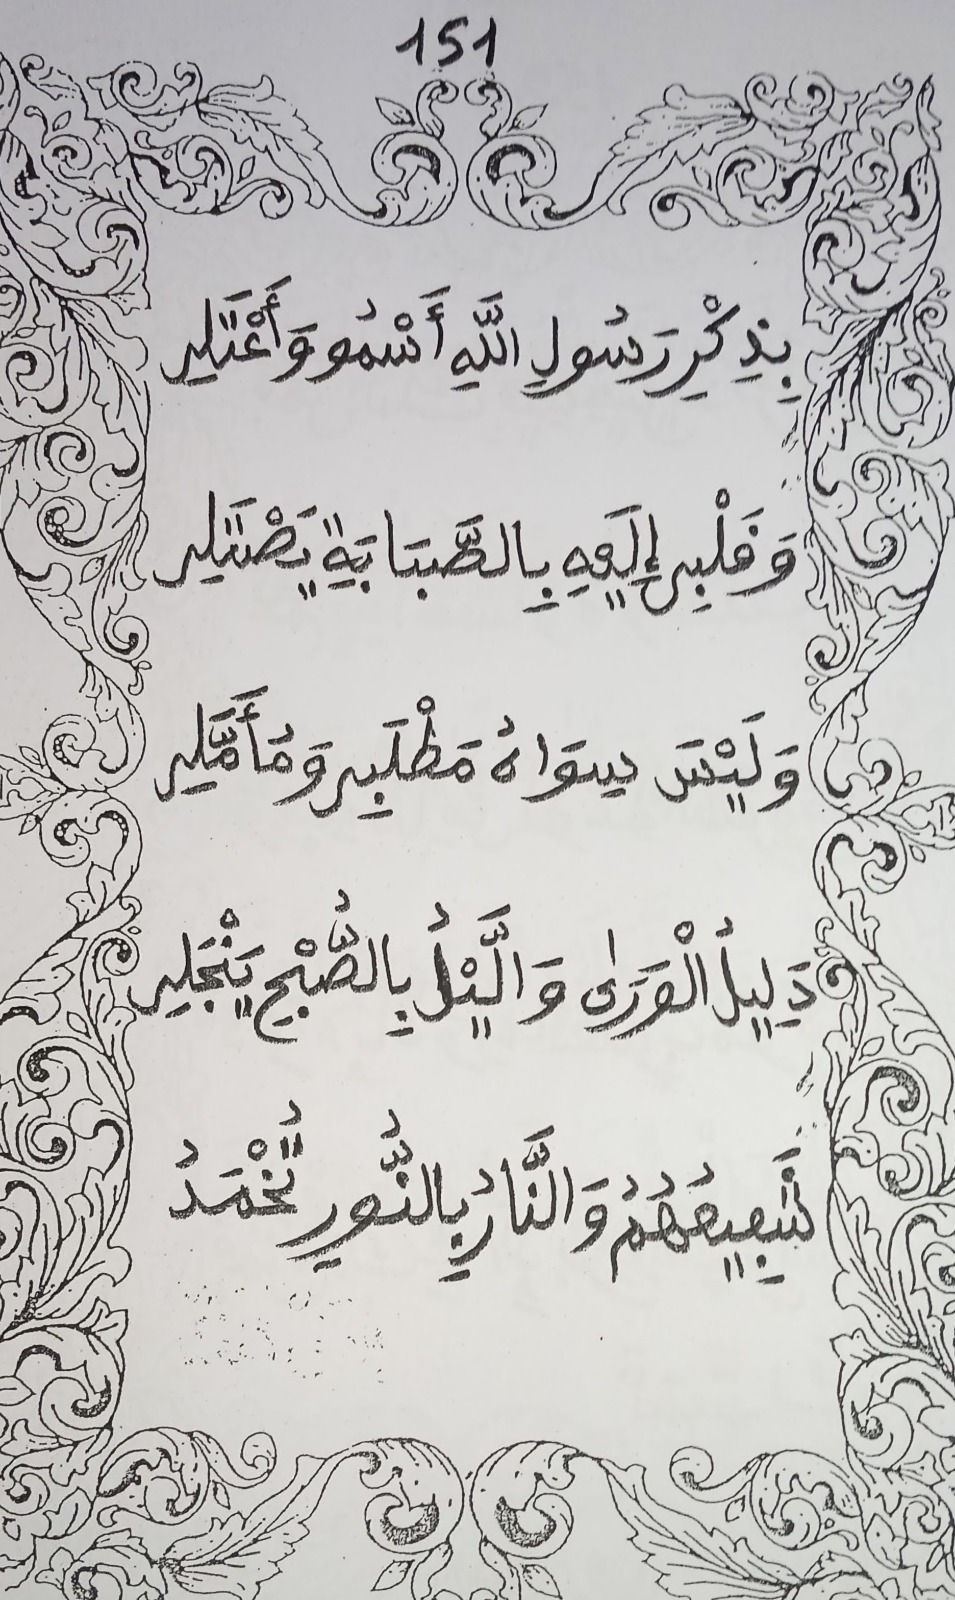 151
بِذِكْرِ رَسُولِ اللَّهِ أَسْمُو وَأَعْتَلِي
وَقَلْبِي إِلَيْهِ بِالصَّبَابَةِ يَصْتَلِي
وَلَيْسَ سِوَاهُ مَطْلَبِي وَمُأَمَّلِي
دَلِيلُ الْوَرَىٰ وَالَّيْلُ بِالصُّبْحِ يَنْجَلِي
شَفِيعُهُمُ وَالنَّارُ بِالنُّورِ تُخْمَدُ